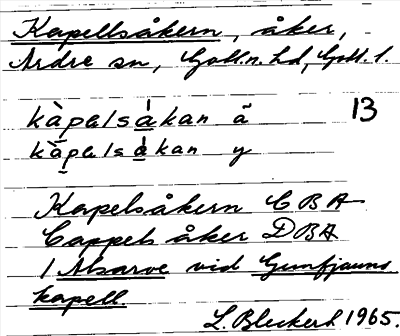 Kapellsåkern, åker,
Ardre sn, Gotl. n. hd, Gotl. l.
kàpalsákan ã 13
kàpalsákan y
Kapelsåkern CBA
Cappels åker DBA
/ Alsarve vid Gunfjauns
kapell.
L. Bleckert 1965.